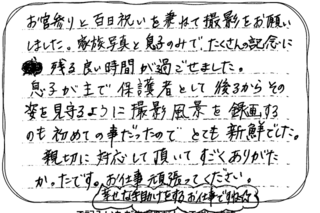 お宮参りと百日祝いを兼ねて撮影をお願い
しました。家族写真と息子のみで、たくさんの記念に
残る良い時間が過ごせました。
息子が主で保護者として後ろからその
姿を見守るように撮影風景を録画する
のも初めての事だったのでとても新鮮でした。
親切に対応して頂いてすごくありがた
かったです。お仕事頑張ってください。
幸せな手助けをするお仕事で